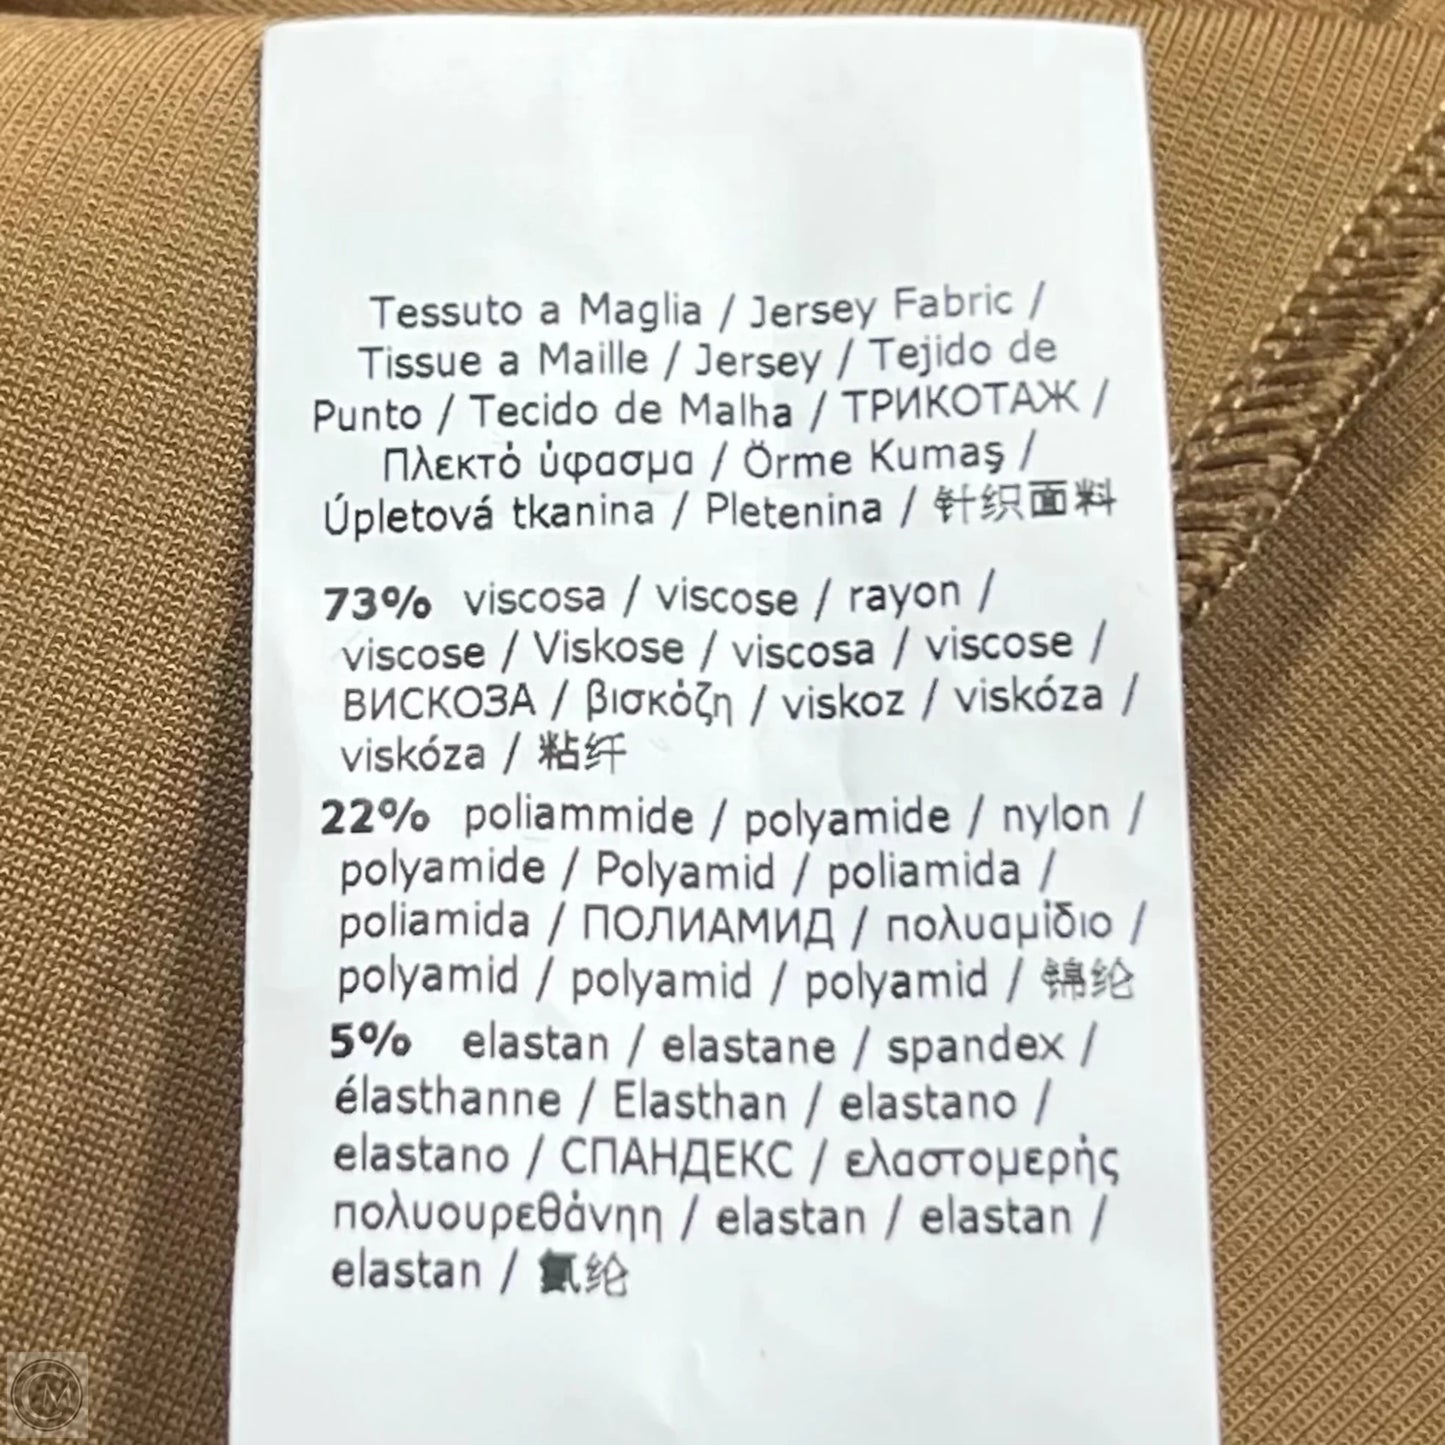 Tessuto a Maglia / Jersey Fabric /
Tissue a Maille / Jersey / Tejido de
Punto / Tecido de Malha / ТРИКОТАЖ /
Πλεκτό ύφασμα / Örme Kumaş /
Úpletová tkanina / Pletenina / 针织面料
73% viscosa / viscose / rayon /
viscose / Viskose / viscosa / viscose /
ВИСКОЗА / βισκόζη / viskoz / viskóza /
viskóza / 粘纤
22% poliammide / polyamide / nylon /
polyamide / Polyamid / poliamida /
poliamida / ПОЛИАМИД / πολυαμίδιο /
polyamid / polyamid / polyamid / 锦纶
5% elastan / elastane / spandex /
élasthanne / Elasthan / elastano /
elastano / СПАНДЕКС / ελαστομερής
πολυουρεθάνηη / elastan / elastan /
elastan / 氨纶